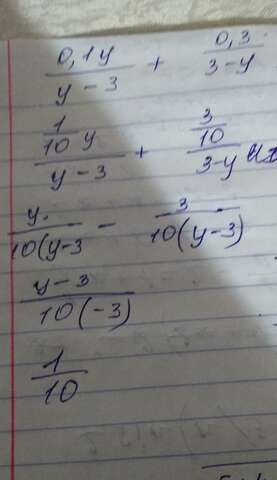 0,1y/(y-3) + 0,3/(3-y)
(1/10 y)/(y-3) + (3/10)/(3-y)
y/(10(y-3 - 3/(10(y-3)
(y-3)/(10(-3))
1/10